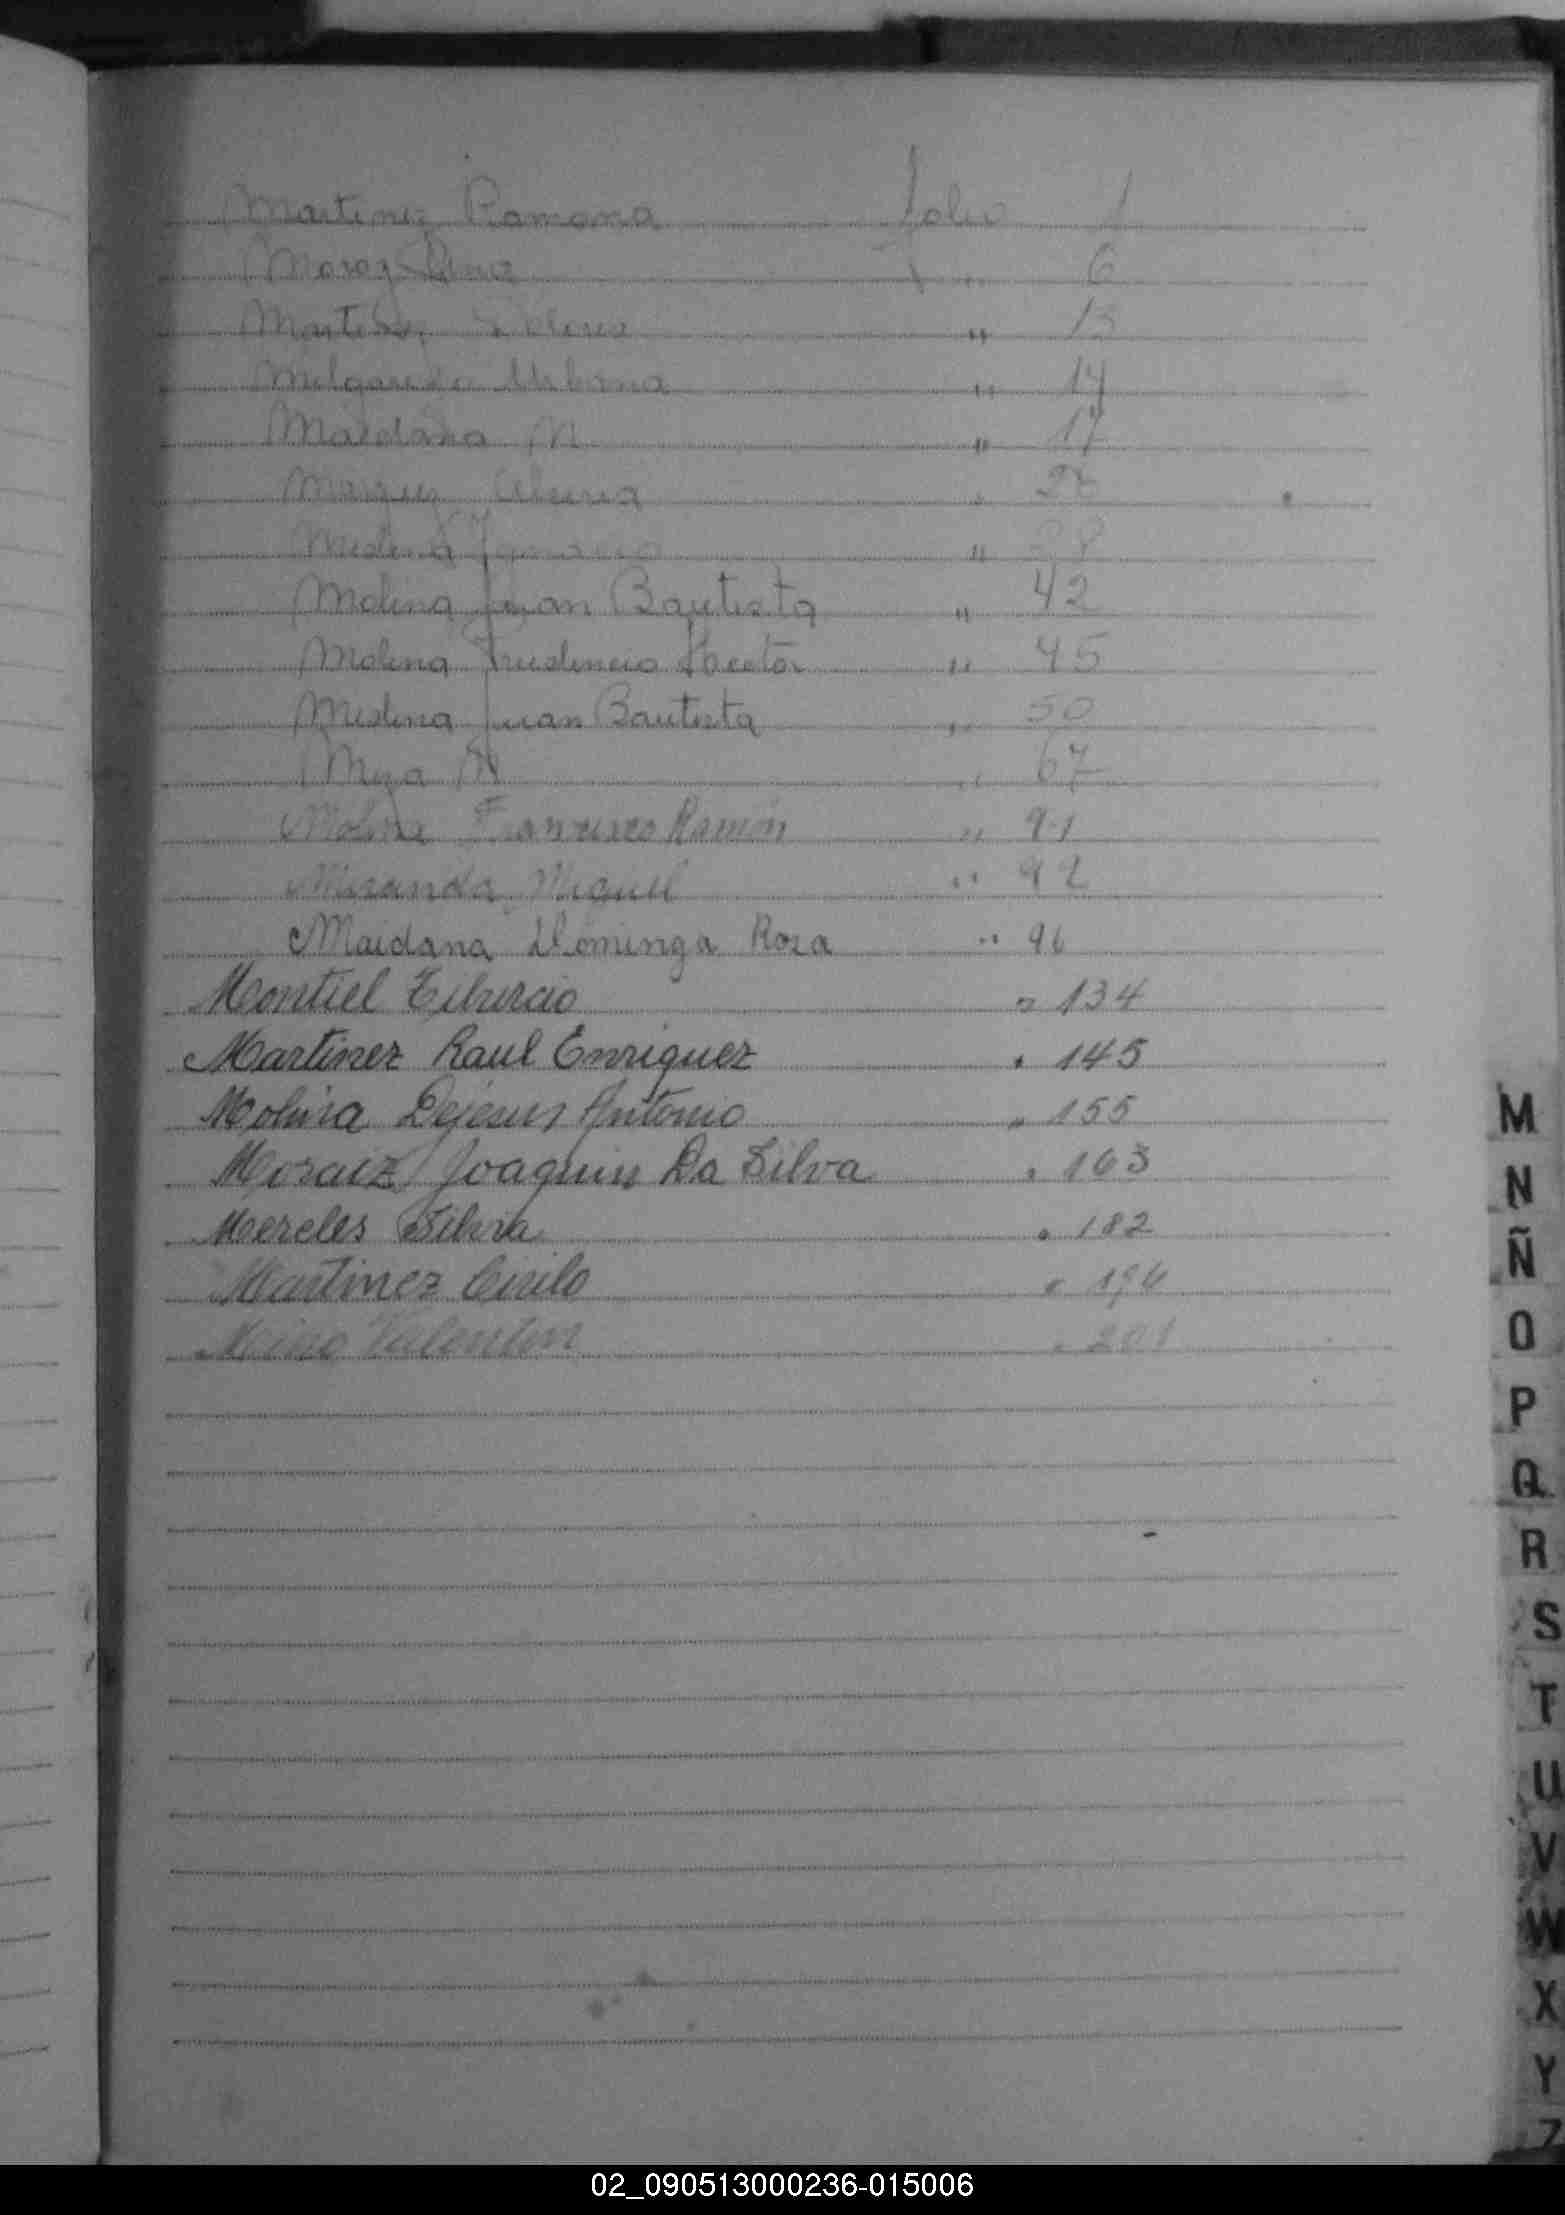 Martinez Ramona folio 1
" 6
" 13
Melgarejo Urbana " 14
Maidana N " 17
"
Medina Ignacio "
Molina Juan Bautista " 42
Molina Prudencio Hector " 45
Medina Juan Bautista " 50
Meza N " 67
Molina Francisco Ramón " 91
Miranda Miguel " 92
Maidana Dominga Rosa " 96
Montiel Tiburcio " 134
Martinez Raul Enriquez " 145
Molina Dejesus Antonio " 155
Moraiz Joaquin Da Silva " 163
Mereles Silvia " 182
Martinez Cirilo " 196
Valentin " 201
M
N
Ñ
O
P
Q
R
S
T
U
V
W
X
Y
Z
02_090513000236-015006